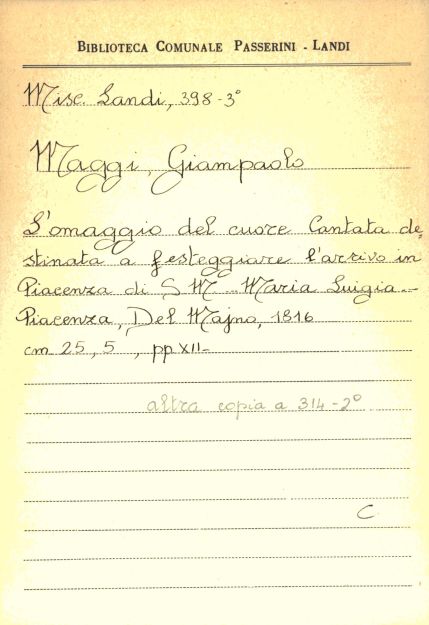 BIBLIOTECA COMUNALE PASSERINI - LANDI
Misc. Landi, 398-3°
Maggi, Giampaolo
L'omaggio del cuore Cantata de=
stinata a festeggiare l'arrivo in
Piacenza di S M - Maria Luigia -
Piacenza, Del Majno, 1816
cm 25,5, pp XII-
altra copia a 314-2°
C